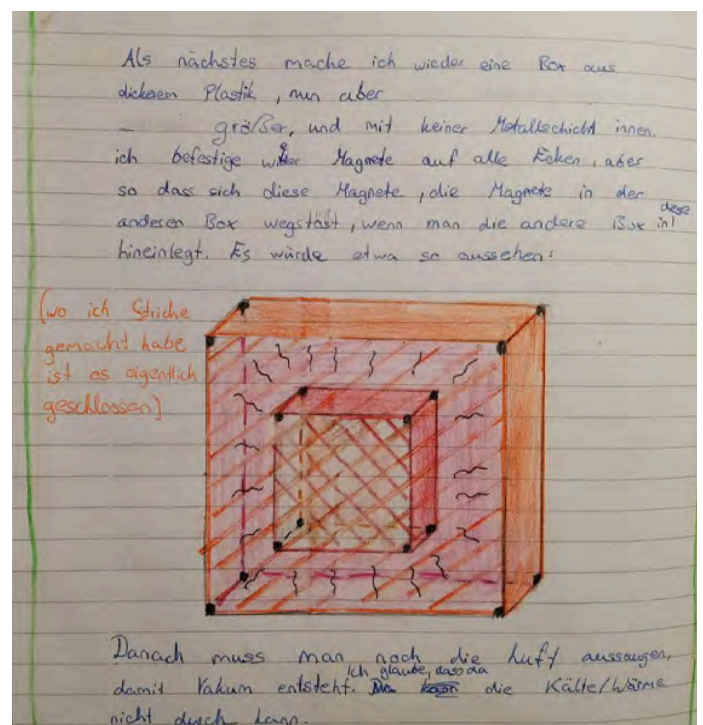 Als nächstes mache ich wieder eine Box aus
dickerem Plastik, nun aber
größer, und mit keiner Metallschicht innen.
ich befestige Magnete auf alle Ecken, aber
so dass sich diese Magnete, die Magnete in der
anderen Box wegstöst, wenn man die andere Box in diese
hineinlegt. Es würde etwa so aussehen:
(wo ich Striche
gemacht habe
ist es eigentlich
geschlossen)
Danach muss man noch die Luft aussaugen,
damit Vakum entsteht. Ich glaube, dass da die Kälte/Wärme
nicht durch kann.